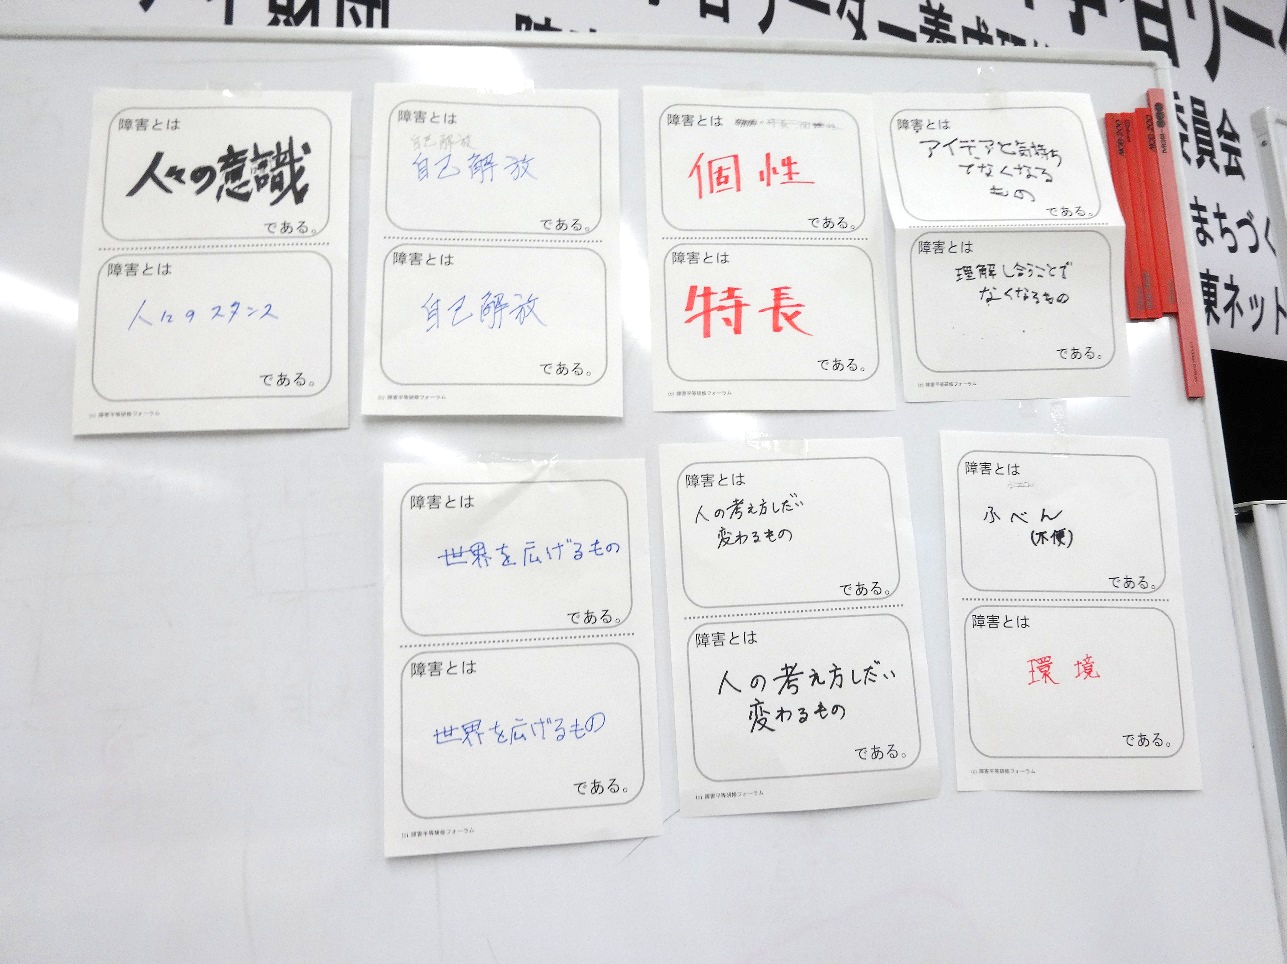 財団
リーダー養成研修
委員会
まちづく
東ネット
障害とは
人々の意識
である。
障害とは
人々のスタンス
である。
(c) 障害平等研修フォーラム
障害とは
自己解放
自己解放
である。
障害とは
自己解放
である。
(c) 障害平等研修フォーラム
障害とは
個性
である。
障害とは
特長
である。
(c) 障害平等研修フォーラム
障害とは
アイデアと気持ち
でなくなる
もの
である。
障害とは
理解し合うことで
なくなるもの
である。
(c) 障害平等研修フォーラム
障害とは
世界を広げるもの
である。
障害とは
世界を広げるもの
である。
(c) 障害平等研修フォーラム
障害とは
人の考え方しだい
変わるもの
である。
障害とは
人の考え方しだい
変わるもの
である。
(c) 障害平等研修フォーラム
障害とは
ふべん
(不便)
である。
障害とは
環境
である。
(c) 障害平等研修フォーラム